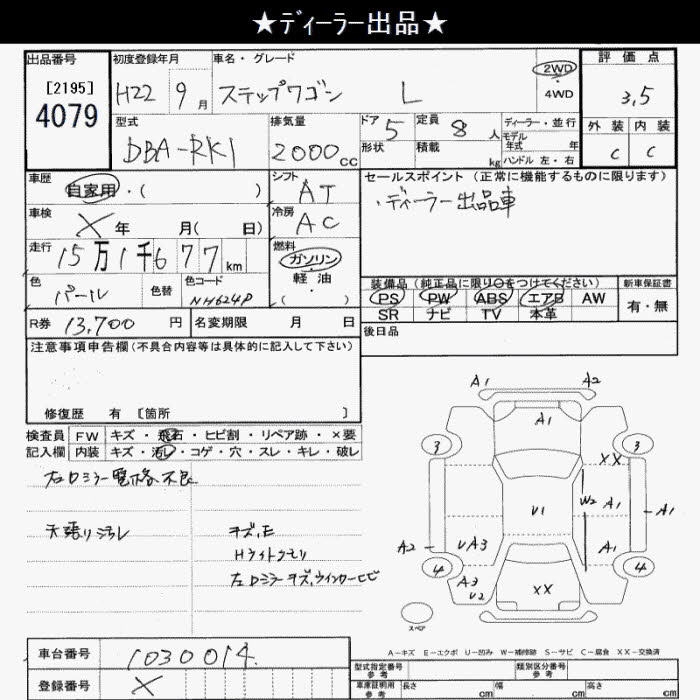 ★ディーラー出品★
出品番号
[2195]
4079
初度登録年月
H22 9月
車名・グレード
ステップワゴン L
2WD
4WD
評価点
3.5
外装 内装
C C
型式
DBA-RK1
排気量
2000cc
ドア 5
形状
定員 8人
積載 kg
ディーラー・並行
モデル年式 年
ハンドル 左・右
車歴
自家用・( )
シフト
AT
セールスポイント (正常に機能するものに限ります)
・ディーラー出品車
車検
X年 月( 日)
冷房
AC
走行
15万1千677km
燃料
ガソリン
軽油
( )
色
パール
色替
色コード
NH624P
装備品(純正品に限り○をつけてください)
PS PW ABS エアB AW
SR ナビ TV 本革
新車保証書
有・無
R券 13,700円
名変期限 月 日
後日品
注意事項申告欄(不具合内容等は具体的に記入して下さい)
修復歴 有 [箇所 ]
検査員
記入欄
FW キズ・飛石・ヒビ割・リペア跡・×要
内装 キズ・汚レ・コゲ・穴・スレ・キレ・破レ
左ロミラー電格不良
天張り汚レ
キズ,E
Hライトクモリ
左ロミラーキズ,ウインカーヒビ
A1 A2
A1
3 3
XX
W2
U1 A1 A1
A2 UA3 A1
4 4
A3
U2
XX
スペア
A-キズ E-エクボ U-凹み W-補修跡 S-サビ C-腐食 XX-交換済
車台番号
1030014
登録番号
X
型式指定番号
参考
類別区分番号
参考
車庫証明用
参考
長さ cm 幅 cm 高さ cm